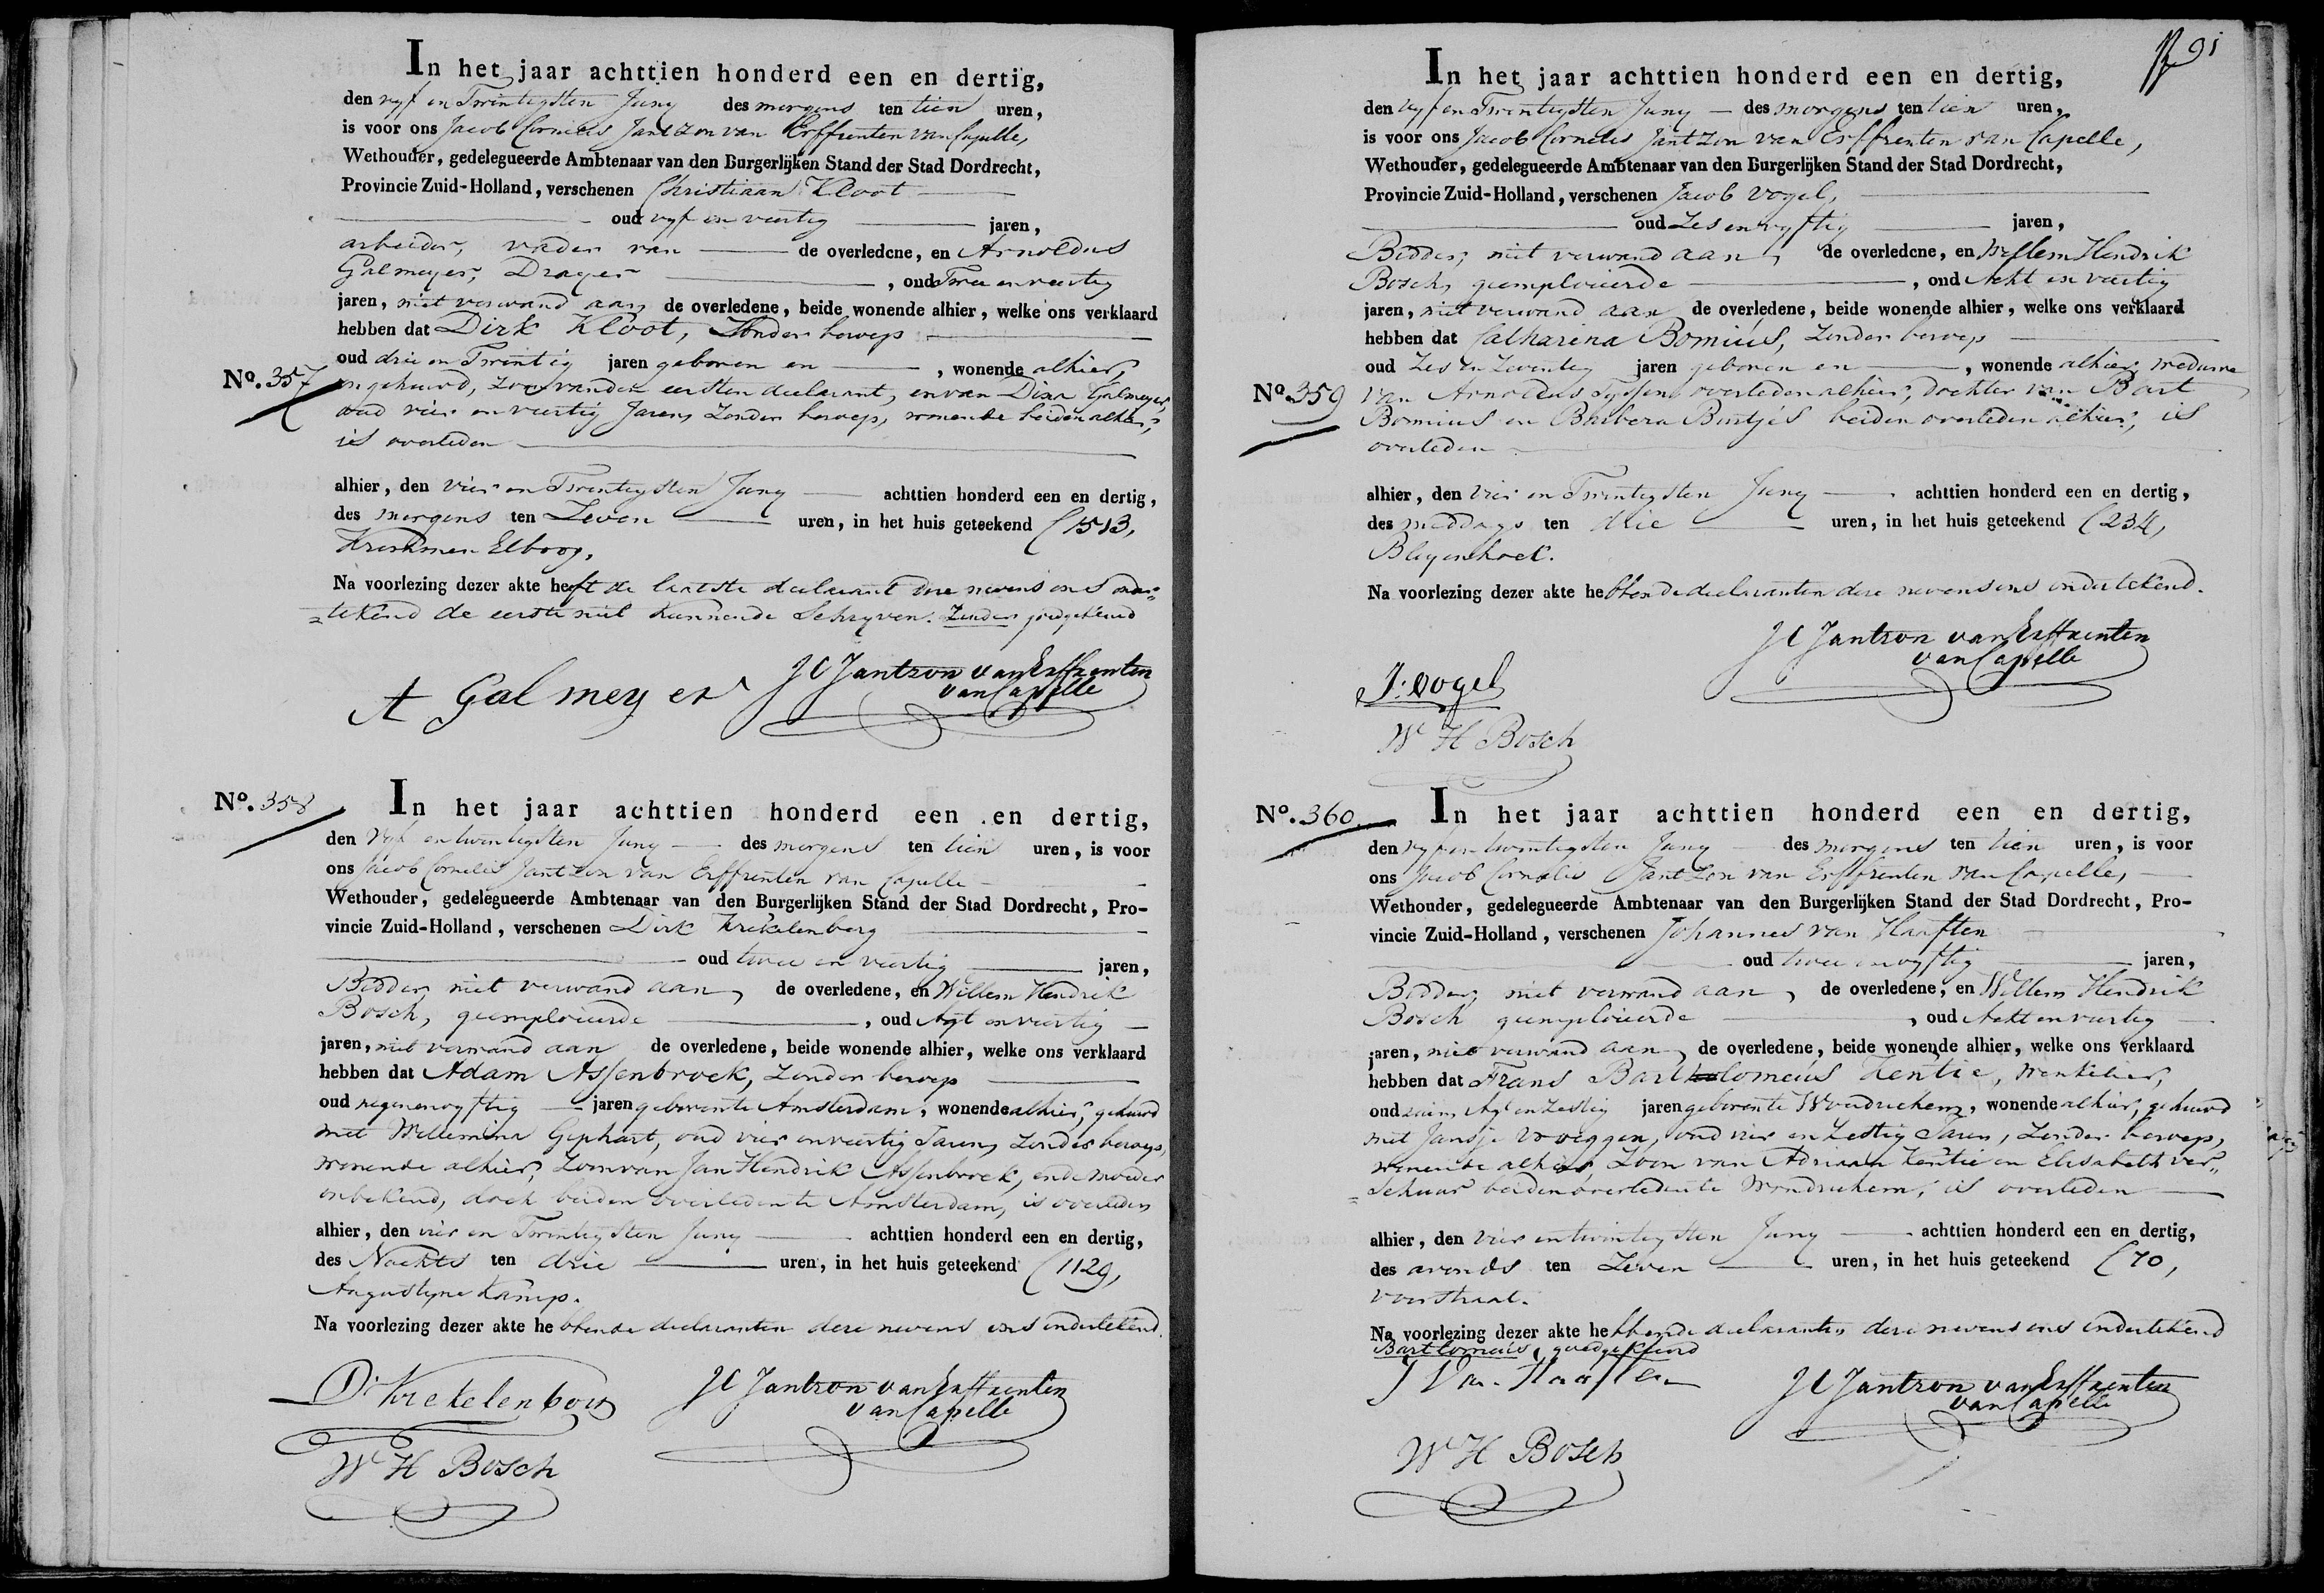 In het jaar achttien honderd een en dertig,
den vyf en Twintigsten Juny des morgens ten tien uren,
is voor ons Jacob Cornelis Jantzon van Erffrenten van Capelle,
Wethouder, gedelegueerde Ambtenaar van den Burgerlijken Stand der Stad Dordrecht,
Provincie Zuid-Holland, verschenen Christiaan Kloot
oud vyf en veertig jaren,
arbeider, vader van de overledene, en Arnoldus
Galmeyer, Drager, oud Twee en veertig
jaren, niet verwand aan, de overledene, beide wonende alhier, welke ons verklaard
hebben dat Dirk Kloot, Zonder beroep
oud drie en Twintig jaren geboren en , wonende alhier,
No. 357 ongehuwd, zoon van den eersten declarant, en van Dina Galmeyer,
oud vier en veertig Jaren, Zonder beroep, wonende beiden alhier,
is overleden
alhier, den vier en Twintigsten Juny achttien honderd een en dertig,
des morgens ten Zeven uren, in het huis geteekend C 1513,
Krommen Elboog.
Na voorlezing dezer akte heeft de laatste declarant dere nevens ons onder=
=tekend de eerste niet kunnende Schryven. Zonder goedgekeurd
A Galmeyer JC Jantzon van Erffrenten
van Capelle
No. 358 In het jaar achttien honderd een en dertig,
den Vyf en twintigsten Juny des morgens ten tien uren, is voor
ons Jacob Cornelis Jantzon van Erffrenten van Capelle
Wethouder, gedelegueerde Ambtenaar van den Burgerlijken Stand der Stad Dordrecht, Pro-
vincie Zuid-Holland, verschenen Dirk Krekelenberg
oud twee en veertig jaren,
Bidder, niet verwand aan, de overledene, en Willem Hendrik
Bosch, geemploieerde, oud Agt en veertig
jaren, niet verwand aan de overledene, beide wonende alhier, welke ons verklaard
hebben dat Adam Assenbroek, Zonder beroep
oud negen en vyftig jaren geboren te Amsterdam, wonende alhier, gehuwd
met Willemina Gephart, oud vier en veertig Jaren, Zonder beroep,
wonende alhier, Zoon van Jan Hendrik Assenbroek, en de moeder
onbekend, doch beiden overleden te Amsterdam, is overleden
alhier, den vier en Twintigsten Juny achttien honderd een en dertig,
des Nachts ten drie uren, in het huis geteekend C 1129,
Augustyne Kamp.
Na voorlezing dezer akte hebbende declaranten dere nevens ons ondertekend.
D: Krekelenberg JC Jantzon van Erffrenten
van Capelle
W H Bosch
91
In het jaar achttien honderd een en dertig,
den vyf en Twintigsten Juny des morgens ten tien uren,
is voor ons Jacob Cornelis Jantzon van Erffrenten van Capelle,
Wethouder, gedelegueerde Ambtenaar van den Burgerlijken Stand der Stad Dordrecht,
Provincie Zuid-Holland, verschenen Jacob Vogel,
oud Zes en vyftig jaren,
Bidder, niet verwand aan, de overledene, en Willem Hendrik
Bosch, geemploieerde, oud Acht en veertig
jaren, niet verwand aan de overledene, beide wonende alhier, welke ons verklaard
hebben dat Catharina Bomius, Zonder beroep
oud Zes en Zeventig jaren geboren en , wonende alhier, weduwe
No. 359 van Arnoldus Tyssen overleden alhier, dochter van Bart
Bomius en Barbera Buntjes beiden overleden alhier, is
overleden
alhier, den Vier en Twintigsten Juny achttien honderd een en dertig,
des middags ten drie uren, in het huis geteekend C 234,
Bleyenhoek.
Na voorlezing dezer akte hebben de declaranten dere nevens ons ondertekend.
JC Jantzon van Erffrenten
van Capelle
J: Vogel
W H Bosch
No. 360. In het jaar achttien honderd een en dertig,
den vyf en twintigsten Juny des morgens ten tien uren, is voor
ons Jacob Cornelis Jantzon van Erffrenten van Capelle,
Wethouder, gedelegueerde Ambtenaar van den Burgerlijken Stand der Stad Dordrecht, Pro-
vincie Zuid-Holland, verschenen Johannes van Haaften
oud twee en vyftig jaren,
Bidder, niet verwand aan, de overledene, en Willem Hendrik
Bosch geemploieerde, oud Acht en veertig
jaren, niet verwand aan, de overledene, beide wonende alhier, welke ons verklaard
hebben dat Frans Bartholomeus Kentie, Winkelier,
oud ruim Agt en Zestig jaren geboren te Woudrichem, wonende alhier, gehuwd
met Jansje Vroeggen, oud vier en Zestig Jaren, Zonder beroep,
wonende alhier Zoon van Adriaan Kentie en Elisabeth Ver=
=Schuur beiden overleden te Woudrichem, is overleden
alhier, den Vier en twintigsten Juny achttien honderd een en dertig,
des avonds ten Zeven uren, in het huis geteekend C 70,
Voorstraat.
Na voorlezing dezer akte hebbende declaranten dere nevens ons ondertekend
Bartlomeus, goedgekeurd
J Van Haaften JC Jantzon van Erffrenten
van Capelle
W H Bosch